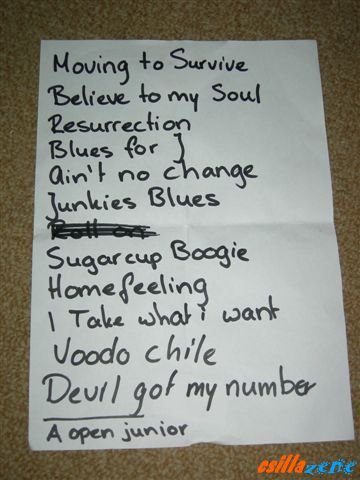 Moving to Survive
Believe to my Soul
Resurrection
Blues for J
Ain't no change
Junkies Blues
Roll on
Sugarcup Boogie
Homefeeling
I Take what i want
Voodo chile
Devil got my number
A open junior
csillazene